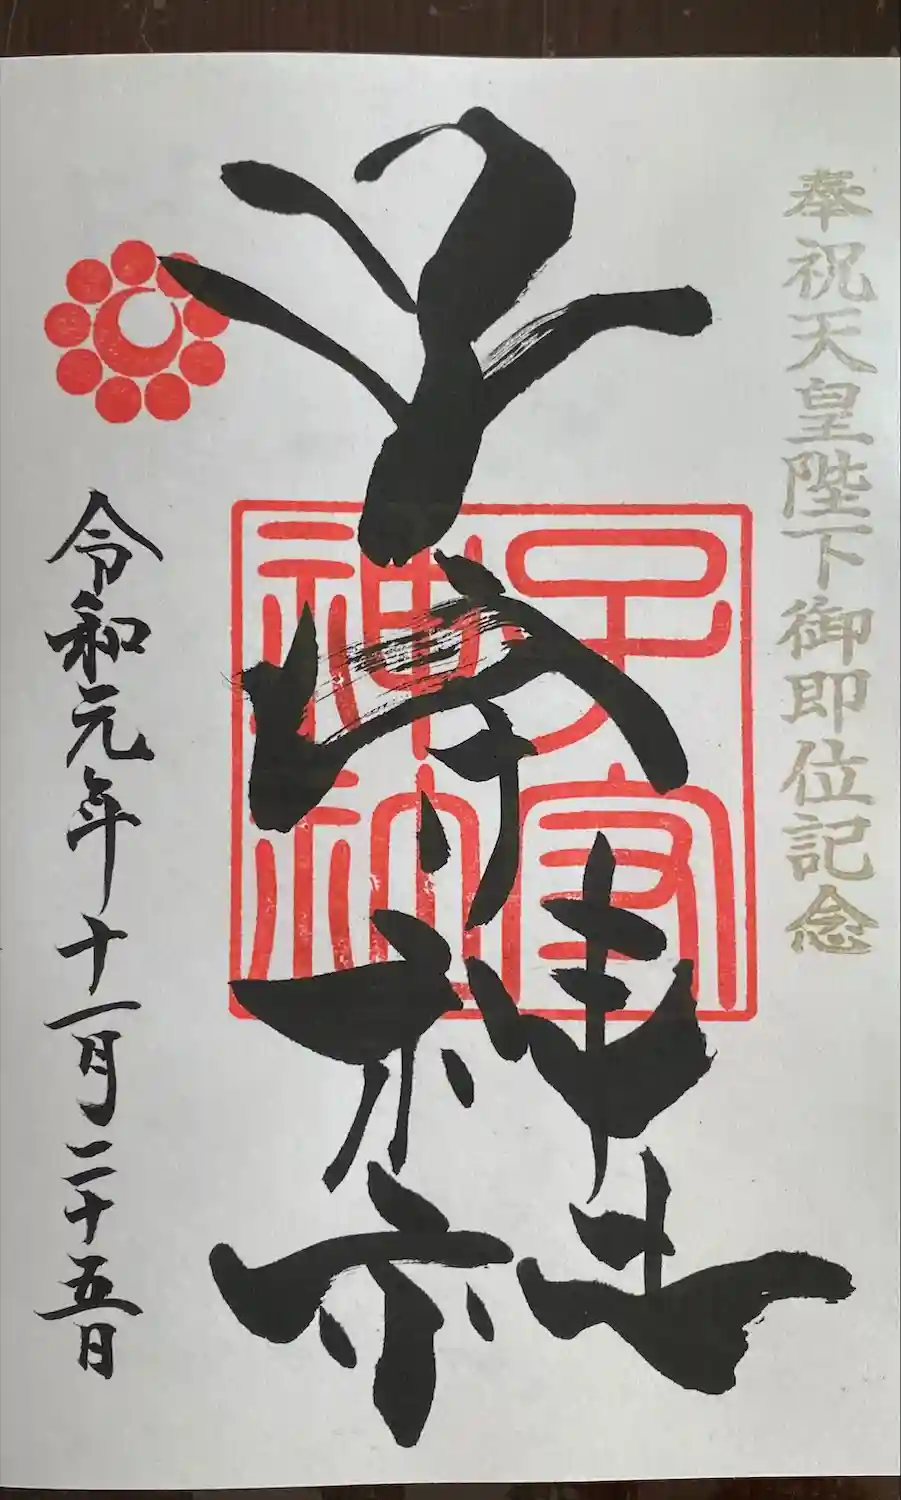 奉祝天皇陛下御即位記念
子守神社
子守
神社
令和元年十一月二十五日